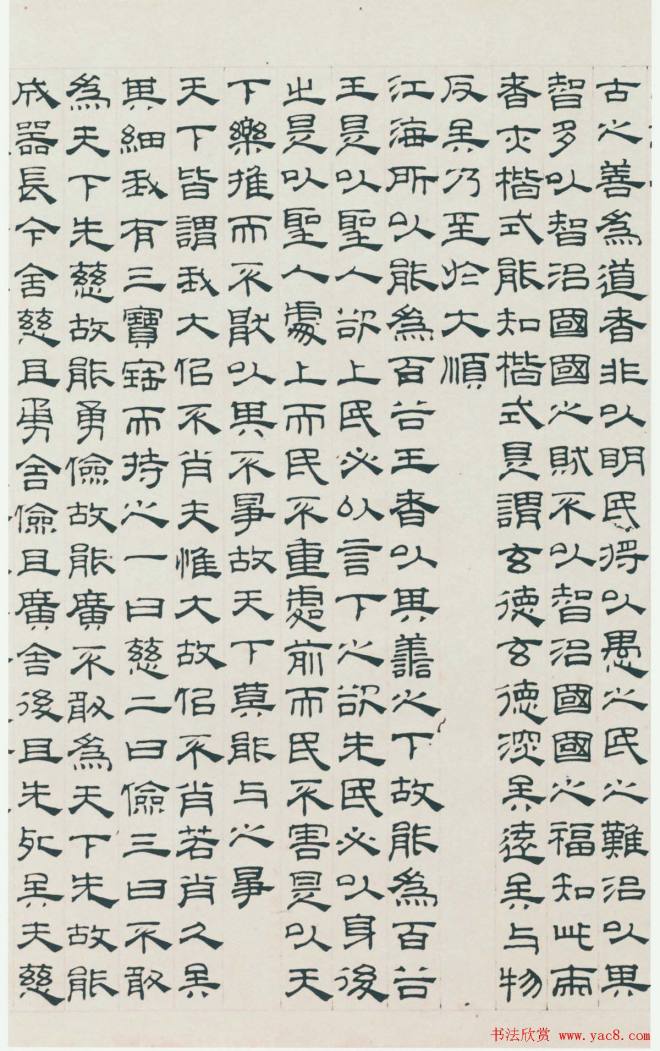 古之善為道者非以明民將以愚之民之難治以其
智多以智治國國之賊不以智治國國之福知此兩
者亦楷式能知楷式是謂玄德玄德深矣遠矣与物
反矣乃至於大順
江海所以能為百谷王者以其善之下故能為百谷
王是以聖人欲上民必以言下之欲先民必以身後
之是以聖人處上而民不重處前而民不害是以天
下樂推而不厭以其不爭故天下莫能与之爭
天下皆謂我大似不肖夫惟大故似不肖若肖久矣
其細我有三寶寶而持之一曰慈二曰儉三曰不敢
為天下先慈故能勇儉故能廣不敢為天下先故能
成器長今舍慈且勇舍儉且廣舍後且先死矣夫慈
书法欣赏 www.yac8.com